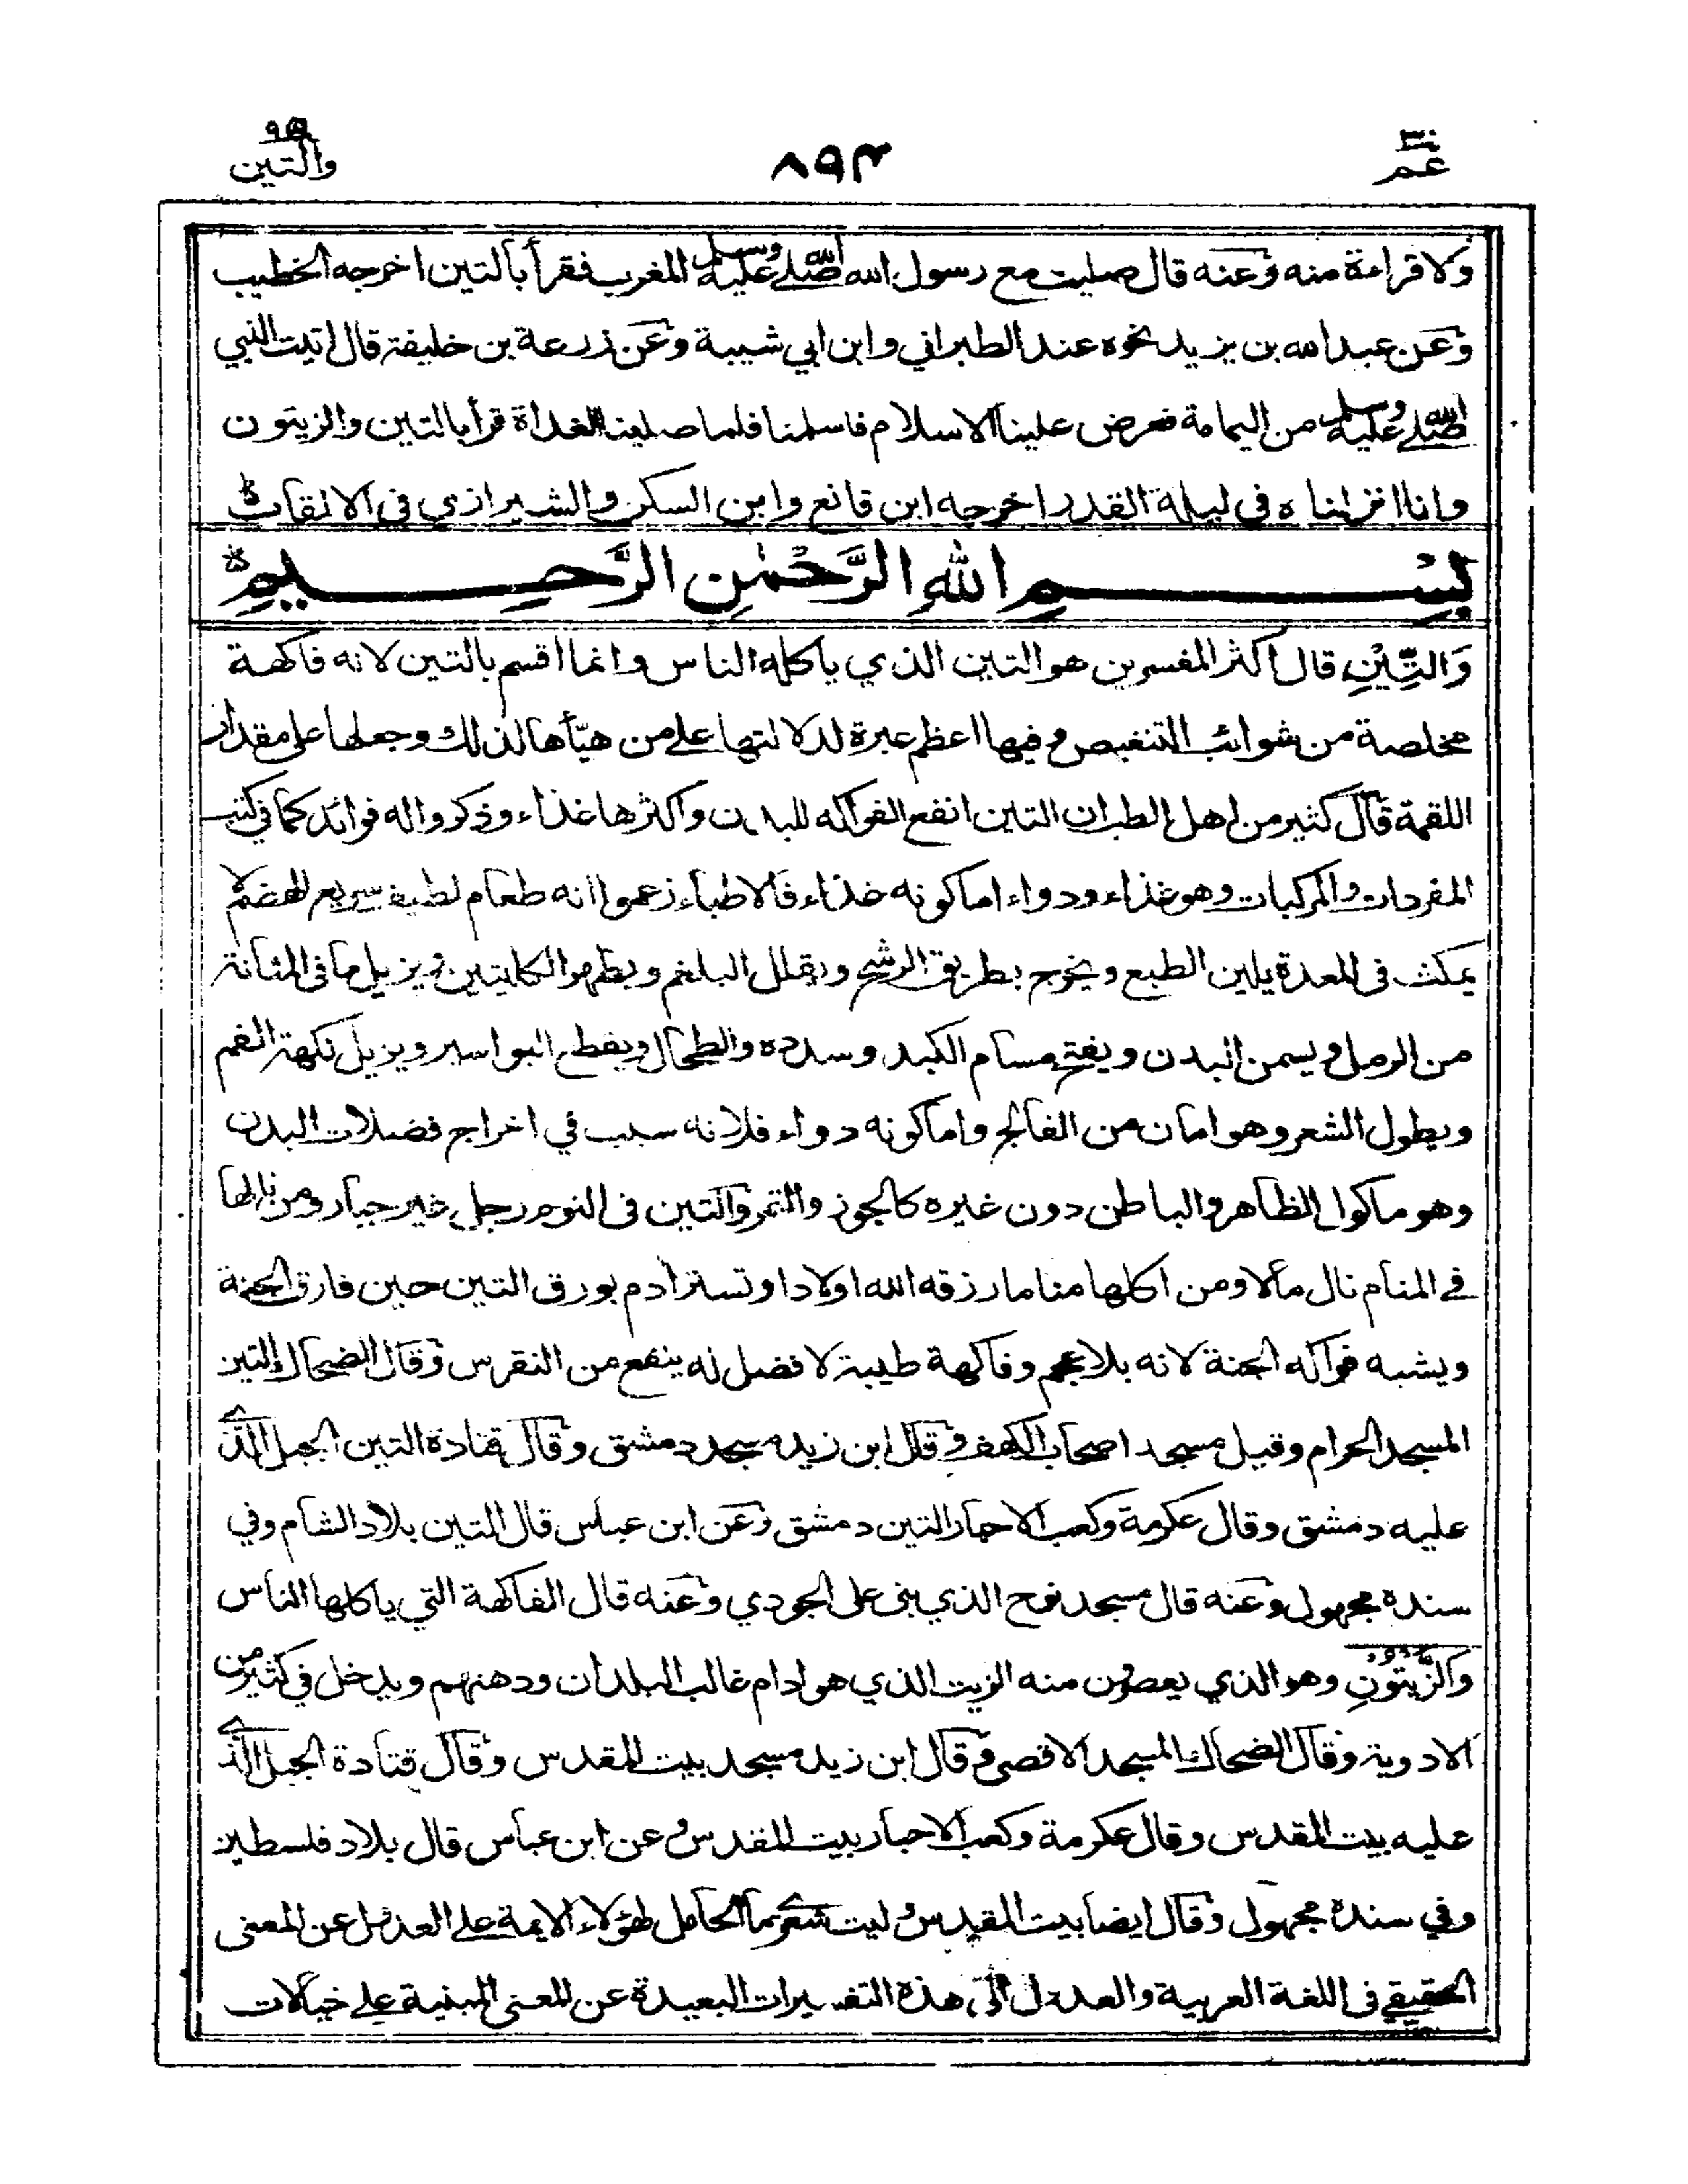 عم ٣٠
٨٩٣
والتين ٩٥
ولا قراءة منه وعنه قال صليت مع رسول الله صلى الله عليه وسلم المغرب فقرأ بالتين اخرجه الخطيب
وعن عبدالله بن يزيد نحوه عند الطبراني وابن ابي شيبة وعن زرعة بن خليفة قال اتيت النبي
صلى الله عليه وسلم من اليمامة فعرض علينا الاسلام فاسلمنا فلما صلينا الغداة قرأ بالتين والزيتون
وانا انزلناه في ليلة القدر اخرجه ابن قانع وابن السكن والشيرازي فى الالقاب
بِسْمِ اللهِ الرَّحْمٰنِ الرَّحِيمِ
وَالتِّيْنِ قال اكثر المفسرين هو التين الذي ياكله الناس وانما اقسم بالتين لانه فاكهة
مخلصة من شوائب التنغيص وفيها اعظم عبرة لدلالتها على من هيّأها لذلك وجعلها على مقدار
اللقمة قال كثير من اهل الطب ان التين انفع الفواكه للبدن واكثرها غذاء وذكروا له فوائد كما في كتب
المفردات والمركبات وهو غذاء ودواء اما كونه غذاء فالاطباء زعموا انه طعام لطيف سريع الهضم لا
يمكث فى المعدة يلين الطبع ويخرج بطريق الرشح ويقلل البلغم ويطهر الكليتين ويزيل ما فى المثانة
من الرمل ويسمن البدن ويفتح مسام الكبد وسدده والطحال ويقطع البواسير ويزيل نكهة الفم
ويطول الشعر وهو امان من الفالج واما كونه دواء فلانه سبب في اخراج فضلات البدن
وهو ماكول الظاهر والباطن دون غيره كالجوز والتمر والتين فى النوم رجل خير جبار ومن نالها
في المنام نال مالا ومن اكلها مناما رزقه الله اولادا وتستر أدم بورق التين حين فارق الجنة
ويشبه فواكه الجنة لانه بلا عجم وفاكهة طيبة لا فضل له ينفع من النقرس وقال الضحاك التين
المسجد الحرام وقيل مسجد اصحاب الكهف وقال ابن زيد مسجد دمشق وقال قتادة التين الجبل الذي
عليه دمشق وقال عكرمة وكعب الاحبار التين دمشق وعن ابن عباس قال التين بلاد الشام وفي
سنده مجهول وعنه قال مسجد نوح الذي بنى على الجودي وعنه قال الفاكهة التي ياكلها الناس
وَالزَّيْتُوْنِ وهو الذي يعصرون منه الزيت الذي هو ادام غالب البلدان ودهنهم ويدخل في كثير من
الادوية وقال الضحاك المسجد الاقصى وقال ابن زيد مسجد بيت المقدس وقال قتادة الجبل الذي
عليه بيت المقدس وقال عكرمة وكعب الاحبار بيت المقدس وعن ابن عباس قال بلاد فلسطين
وفي سنده مجهول وقال ايضا بيت المقدس وليت شعري ما الحامل لهؤلاء الايمة على العدول عن المعنى
الحقيقي فى اللغة العربية والعدول الى هذه التفسيرات البعيدة عن المعنى المبنية على خيالات